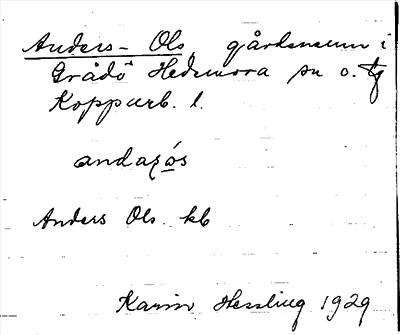 Anders-Ols, gårdsnamn i
Grådö Hedemora sn o. tg
Kopparb. l.
andaʒo̲s
Anders Ols kb
Karin Hessling 1929